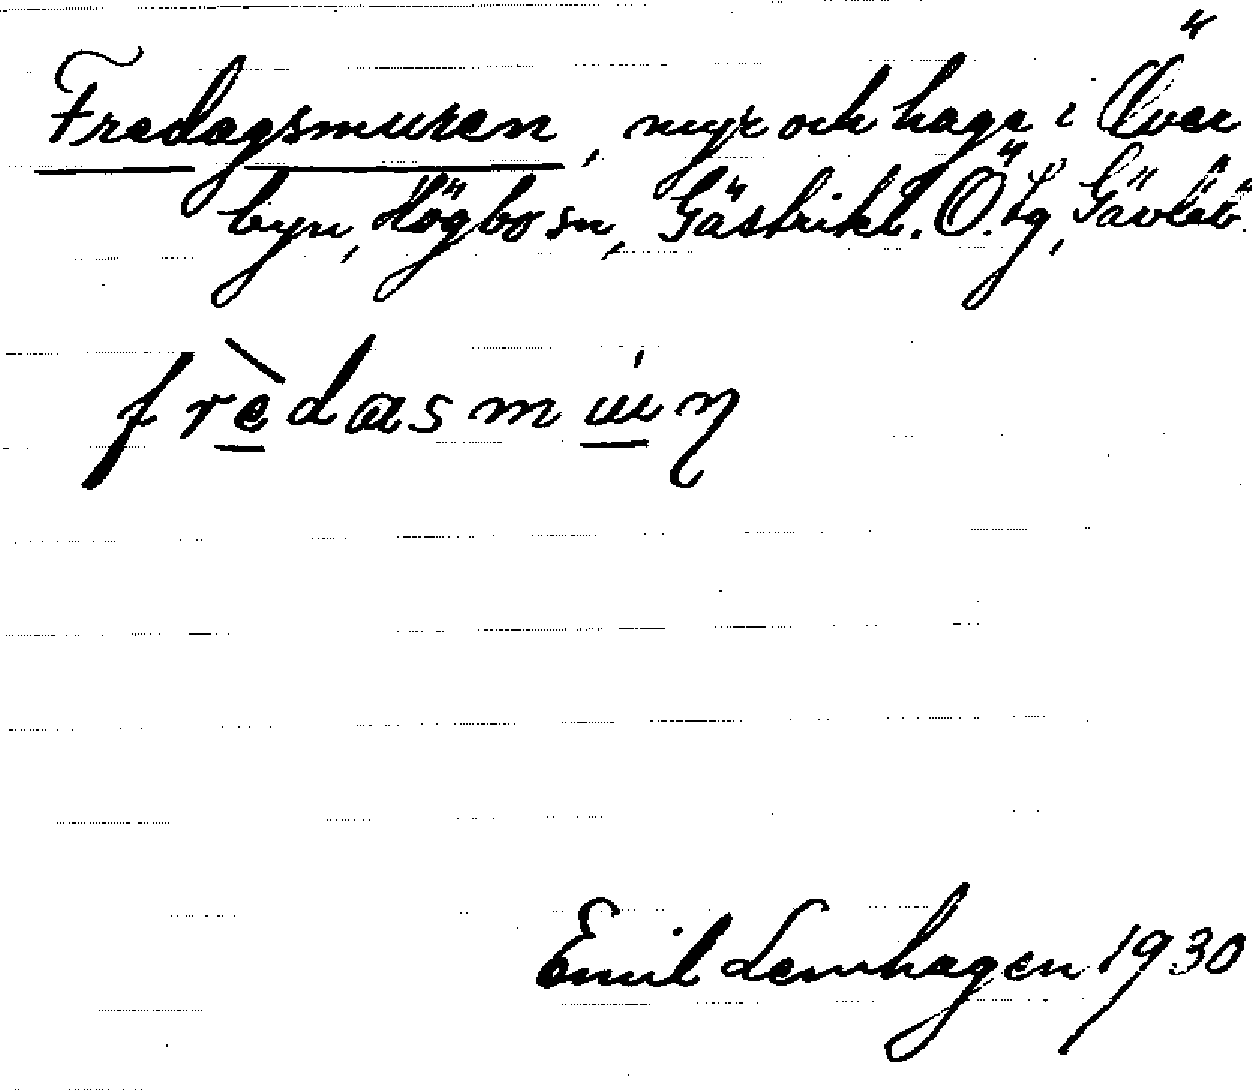 Fredagsmuren, myr och hage i Över
byn, Högbo sn, Gästrikl. Ö. Tg, Gävleb.
frèdasmún
Emil Lenhagen 1930